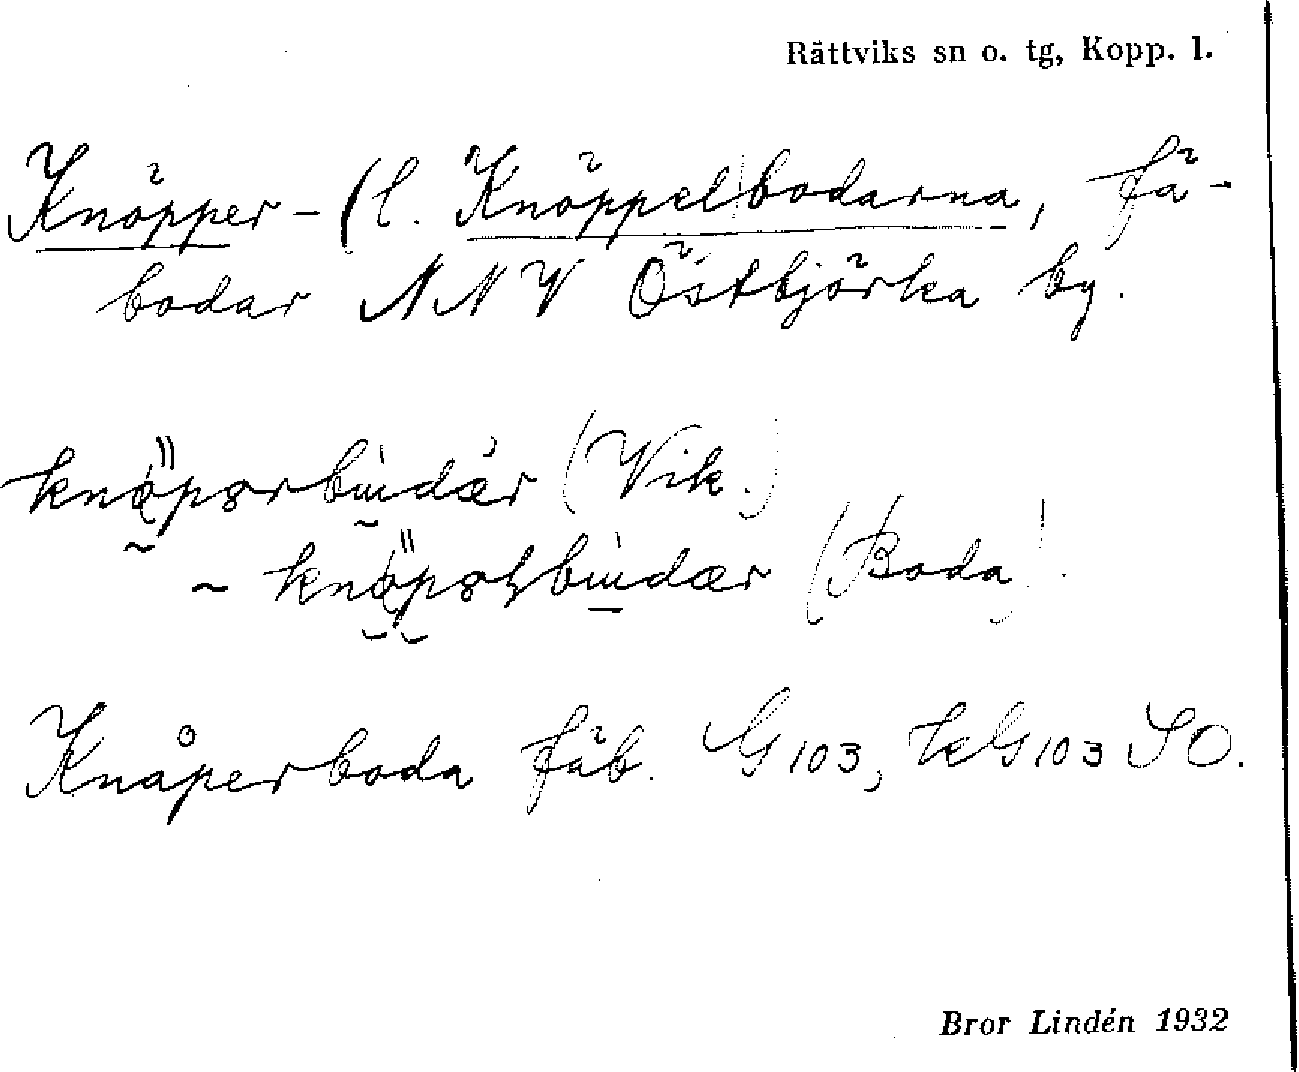 Rättviks sn o. tg, Kopp. l.
Knöpper- (l. Knöppel)bodarna, fä-
bodar NNV Östbjörka by.
(Vik.)
~ (Boda)
Knåperboda fäb. G103, kG103 SO.
Bror Lindén 1932